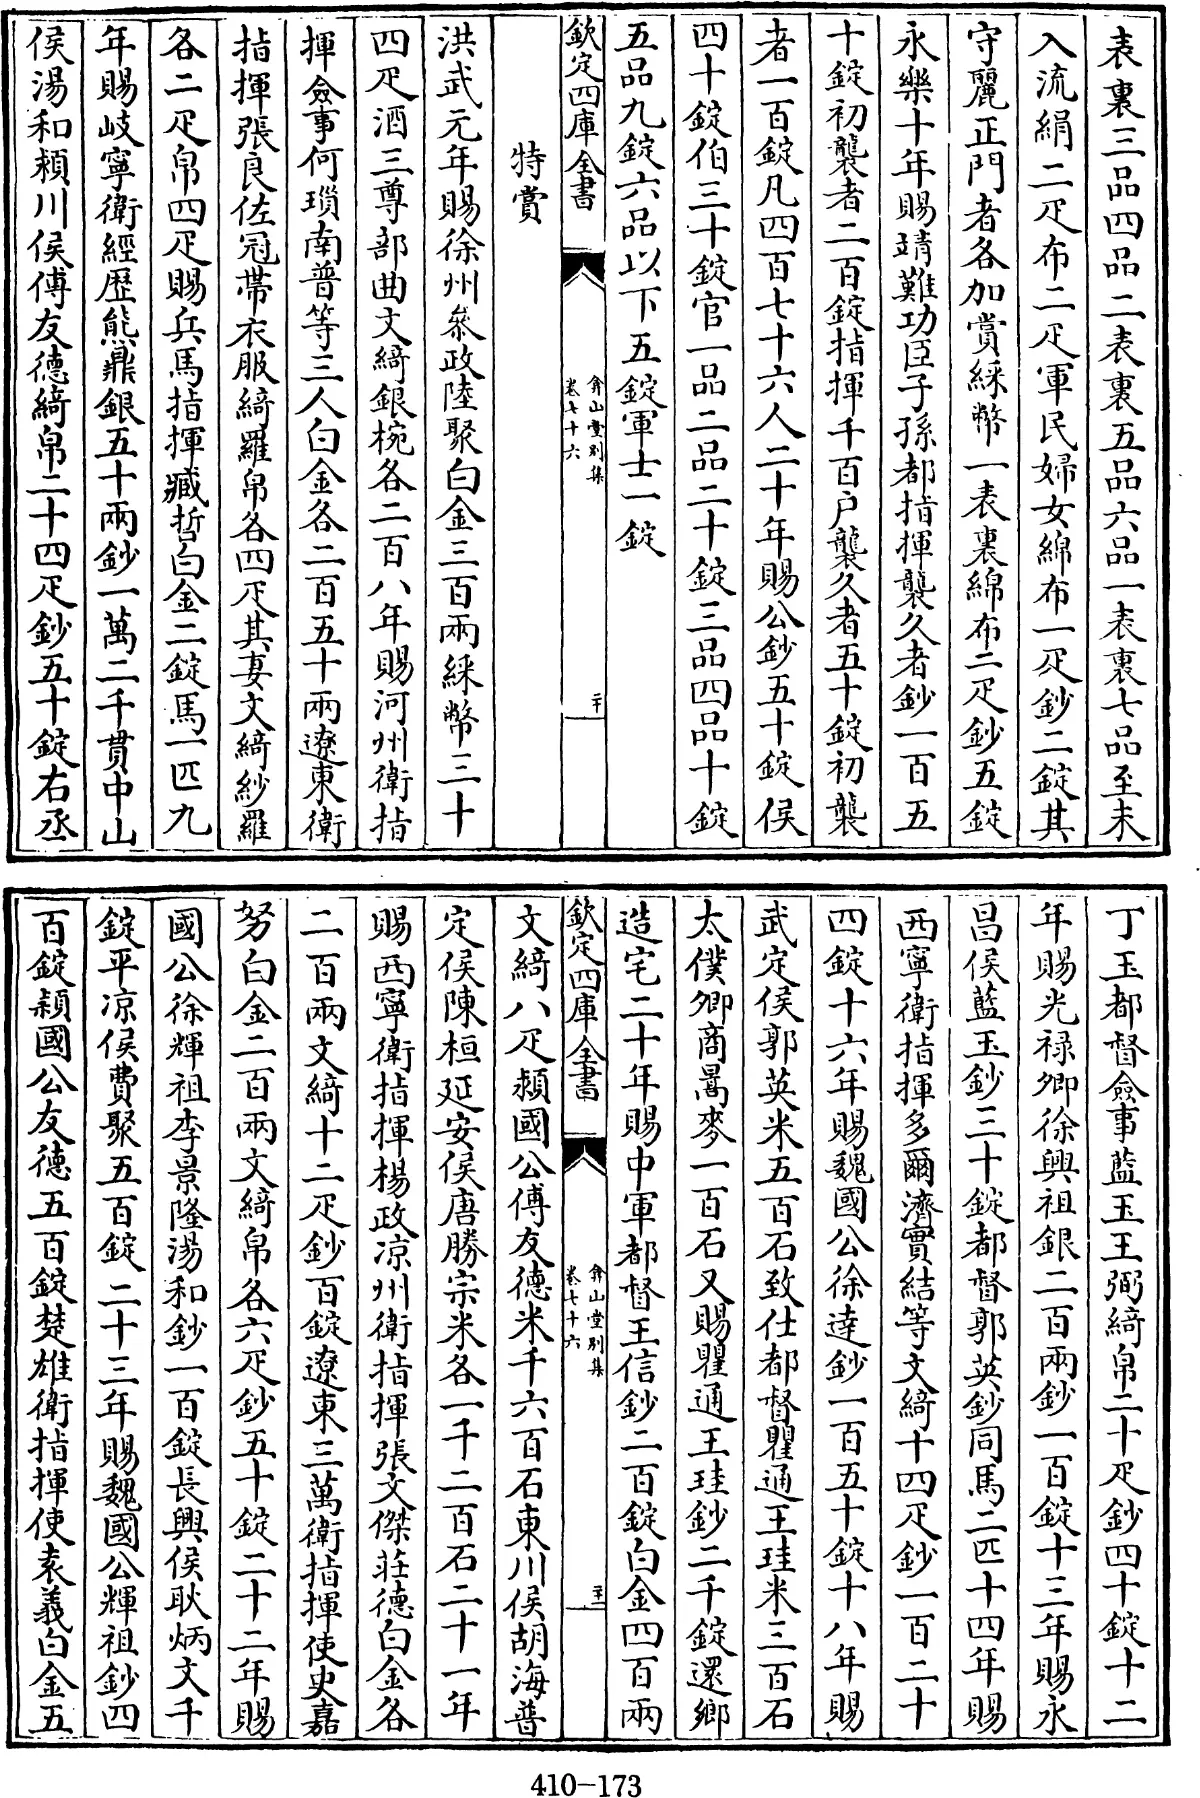 表裏三品四品二表裏五品六品一表裏七品至未
入流絹二疋布二疋軍民婦女綿布一疋鈔二錠其
守麗正門者各加賞綵幣一表裏綿布二疋鈔五錠
永樂十年賜靖難功臣子孫都指揮襲久者鈔一百五
十錠初襲者二百錠指揮千百户襲久者五十錠初襲
者一百錠凡四百七十六人二十年賜公鈔五十錠侯
四十錠伯三十錠官一品二品二十錠三品四品十錠
五品九錠六品以下五錠軍士一錠
欽定四庫全書
弇山堂别集
卷七十六
二十
特賞
洪武元年賜徐州叅政陸聚白金三百兩綵幣三十
四疋酒三尊部曲文綺銀椀各二百八年賜河州衛指
揮僉事何瑣南普等三人白金各二百五十兩遼東衛
指揮張良佐冠帶衣服綺羅帛各四疋其妻文綺紗羅
各二疋帛四疋賜兵馬指揮臧哲白金二錠馬一匹九
年賜岐寧衛經歷熊鼎銀五十兩鈔一萬二千貫中山
侯湯和頴川侯傅友德綺帛二十四疋鈔五十錠右丞
丁玉都督僉事藍玉王弼綺帛二十疋鈔四十錠十二
年賜光禄卿徐興祖銀二百兩鈔一百錠十三年賜永
昌侯藍玉鈔三十錠都督郭英鈔同馬二匹十四年賜
西寧衛指揮多爾濟實結等文綺十四疋鈔一百二十
四錠十六年賜魏國公徐達鈔一百五十錠十八年賜
武定侯郭英米五百石致仕都督瞿通王珪米三百石
太僕卿商暠麥一百石又賜瞿通王珪鈔二千錠還鄉
造宅二十年賜中軍都督王信鈔二百錠白金四百兩
欽定四庫全書
弇山堂别集
卷七十六
二十一
文綺八疋頴國公傅友德米千六百石東川侯胡海普
定侯陳桓延安侯唐勝宗米各一千二百石二十一年
賜西寧衛指揮楊政凉州衛指揮張文傑莊德白金各
二百兩文綺十二疋鈔百錠遼東三萬衛指揮使史嘉
努白金二百兩文綺帛各六疋鈔五十錠二十二年賜
國公徐輝祖李景隆湯和鈔一百錠長興侯耿炳文千
錠平凉侯費聚五百錠二十三年賜魏國公輝祖鈔四
百錠頴國公友德五百錠楚雄衛指揮使袁義白金五
410-173